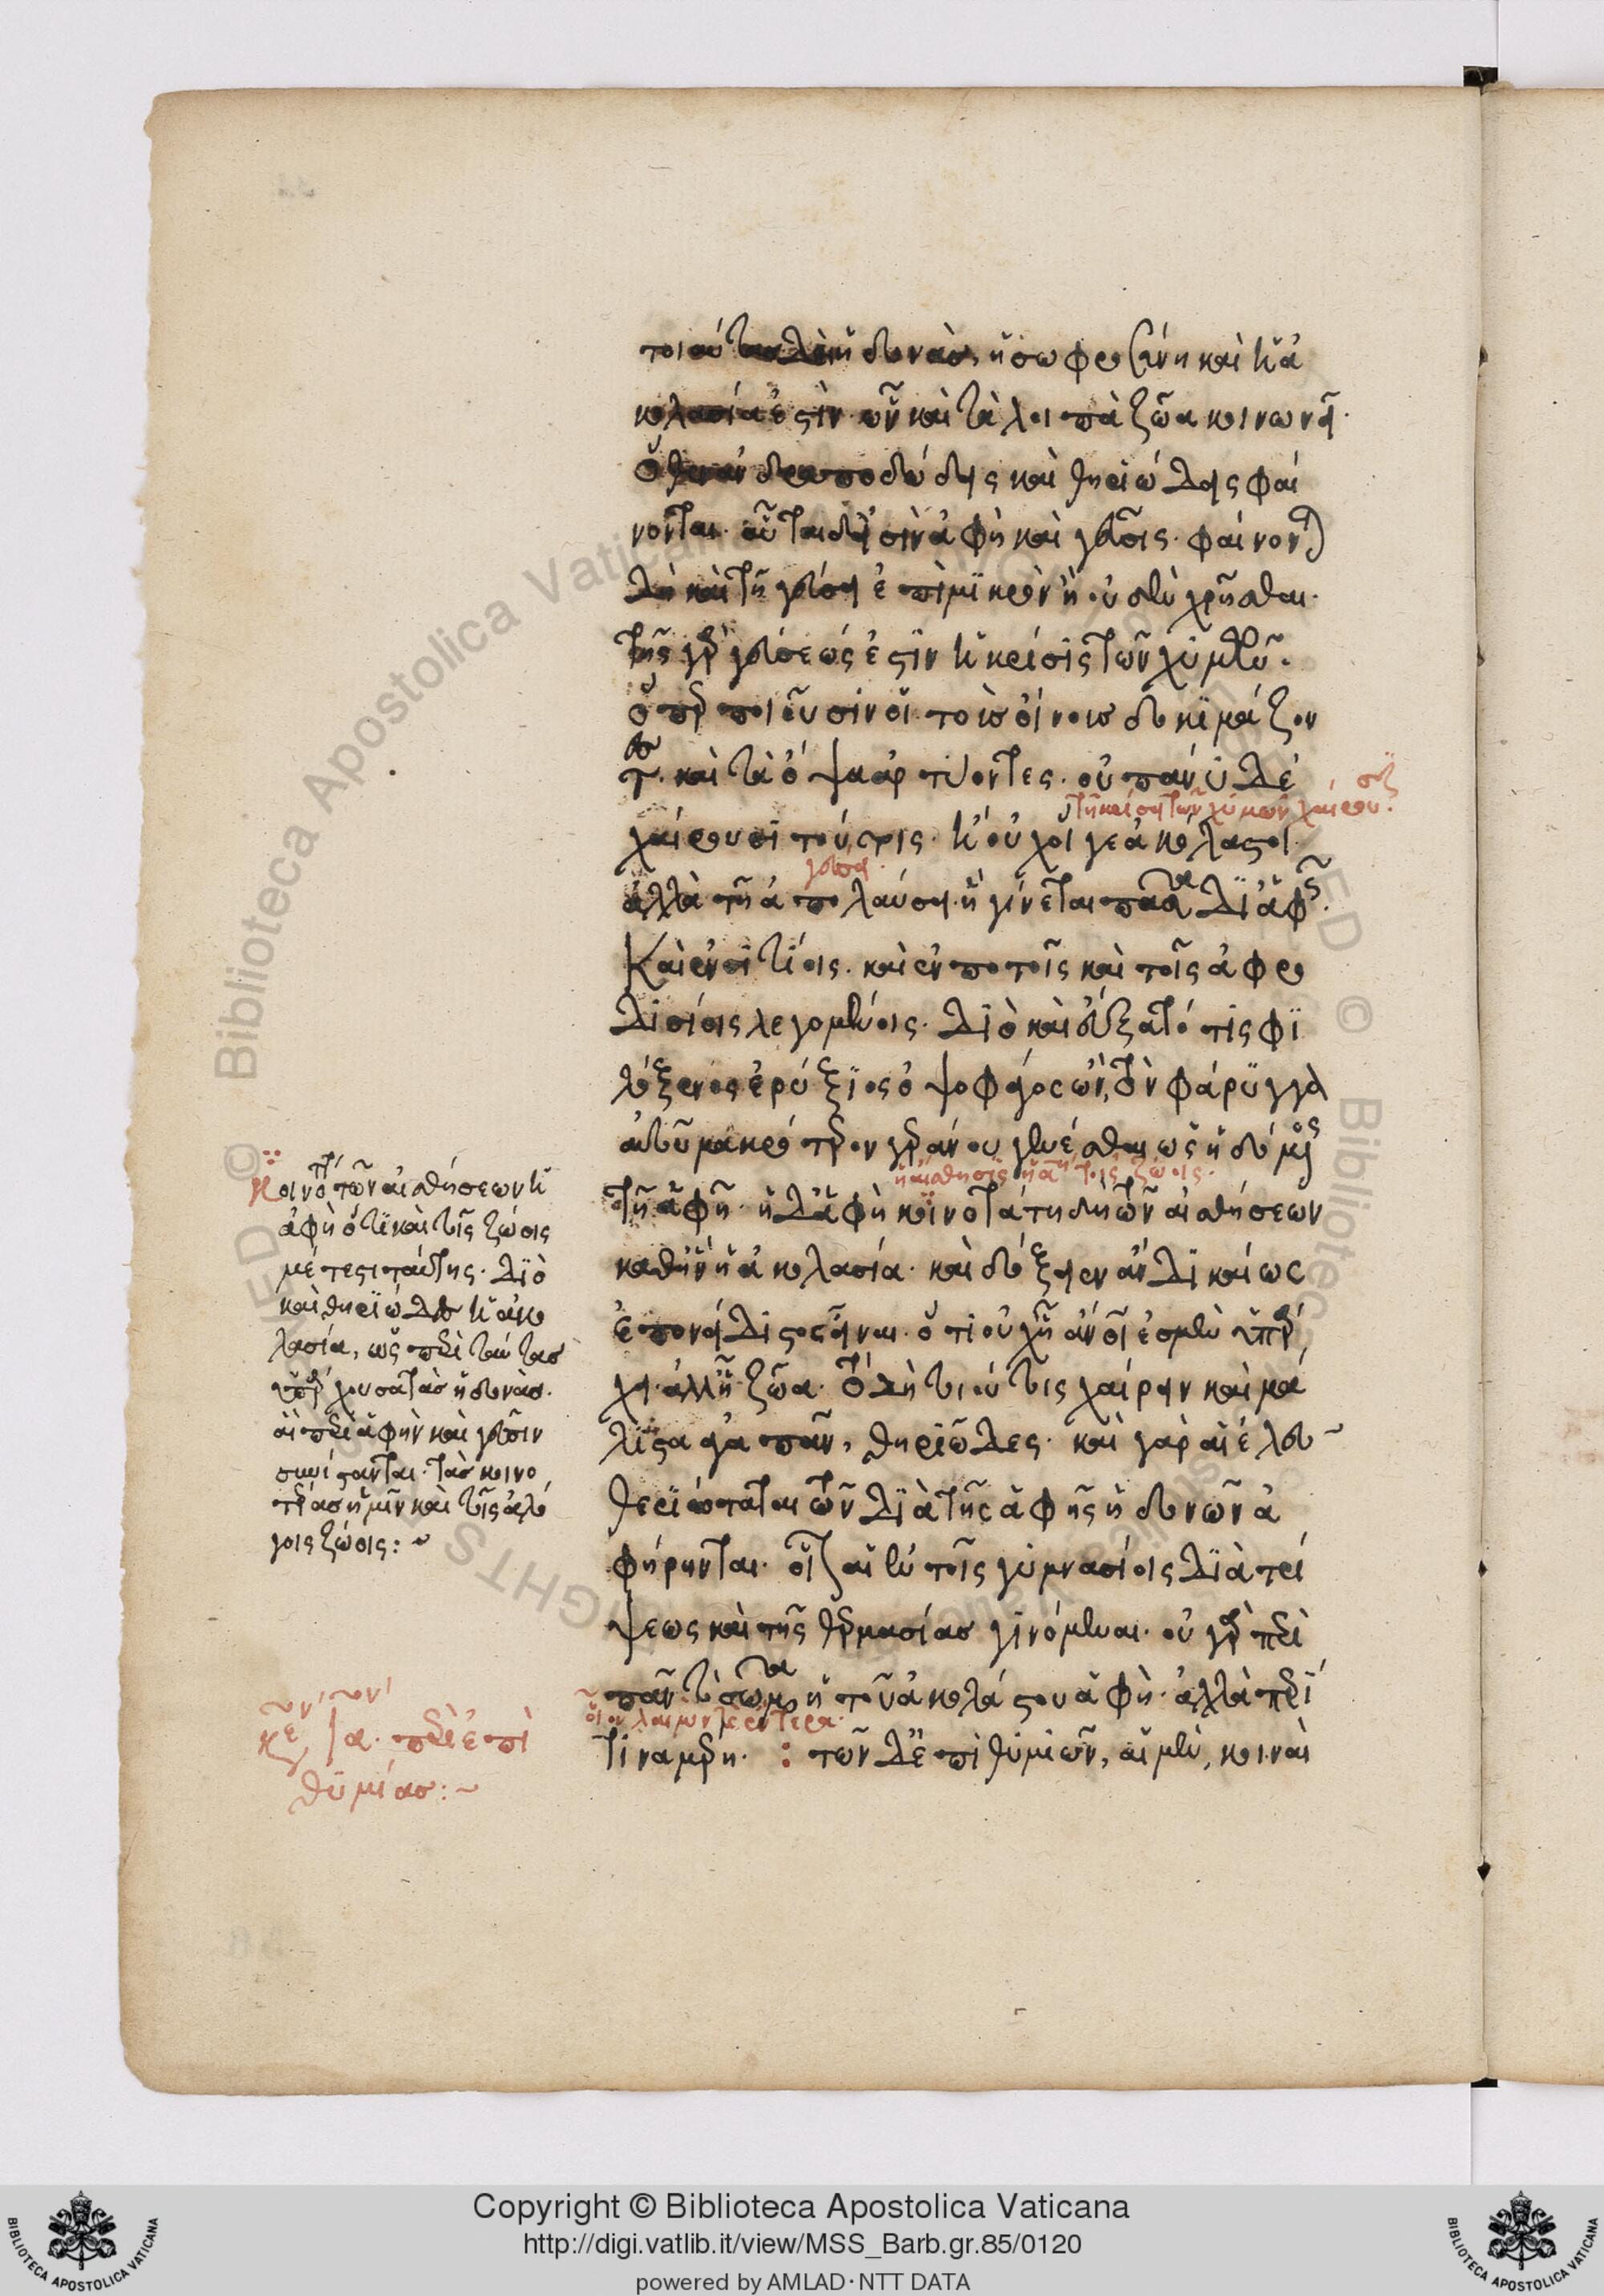 τοιαύτας δὲ ἡδονὰς, ἡ σωφροσύνη καὶ ἡ ἀ
κολασία ἐστὶν. ὧν καὶ τὰ λοιπὰ ζῶα κοινωνεῖ.
ὅθεν ἀνδραποδώδεις καὶ θηριώδεις φαί
νονται. αὗται δ' εἰσὶν ἁφὴ καὶ γεῦσις. φαίνονται
δὴ καὶ τῆ γεύσει ἐπὶ μικρὸν ἢ οὐδὲν χρῆσθαι.
τῆς γὰρ γεύσεώς ἐστιν ἡ κρίσις τῶν χυμῶν.
ὅπερ ποιοῦσιν οἱ τοὺς οἴνους δοκιμάζον
τες. καὶ τὰ ὄψα ἀρτύοντες. οὐ πάνυ δὲ
τῆ κρίσει τῶν χυμῶν χαίρου.
χαίρουσι τούτοις. ἢ οὐχ οἵ γε ἀκόλαστοι.
γεύσει.
ἀλλὰ τῆ ἀπολαύσει. ἣ γίνεται πᾶσα δι' ἁφῆς.
Καὶ ἐν σιτίοις. καὶ ἐν ποτοῖς καὶ τοῖς ἀφρο
δισίοις λεγομένοις. διὸ καὶ εὔξατό τις φι
λόξενος ἐρύξιος ὀψοφάγος ὢν, τὸν φάρυγγα
αὐτοῦ μακρότερον γεράνου γενέσθαι ὡς ἡδόμενος
τῆ ἁφῆ. ἡ δ' ἁφὴ κοινοτάτη δὴ τῶν αἰσθήσεων
καθ' ἣν ἡ ἀκολασία. καὶ δόξειεν ἂν δικαίως
ἐπονείδιστος εἶναι. ὅτι οὐχ ἧ ἄνοι ἐσμὲν ὑπάρ
χει. ἀλλ' ἧ ζῶα. τὸ δὴ τοιούτοις χαίρειν καὶ μά
λιστα ἀγαπᾶν, θηριῶδες. καὶ γὰρ αἱ ἐλευ
θεριώταται τῶν διὰ τῆς ἁφῆς ἡδονῶν ἀ
φήρηνται. οἷον αἱ ἐν τοῖς γυμνασίοις διὰ τρί
ψεως καὶ τῆς θερμασίας γινόμεναι. οὐ γὰρ περὶ
πᾶν τὸ σῶμα ἡ τοῦ ἀκολάστου ἁφὴ. ἀλλὰ περί
τινα μέρη. : τῶν δ' ἐπιθυμιῶν, αἱ μὲν, κοιναὶ
Κοινοτάτη τῶν αἰσθήσεων ἡ
ἁφὴ ὅτι καὶ τοῖς ζώοις
μέτεστι ταύτης. διὸ
καὶ θηριώδης ἡ ἀκο
λασία, ὡς περὶ ταύτας
ἔχουσα τὰς ἡδονὰς.
αἳ περὶ ἁφὴν καὶ γεῦσιν
συνίστανται. τὰς κοινο
τέρας ἡμῖν καὶ τοῖς ἀλό
γοις ζώοις: ~
περὶ ἐπι
θυμίας: ~